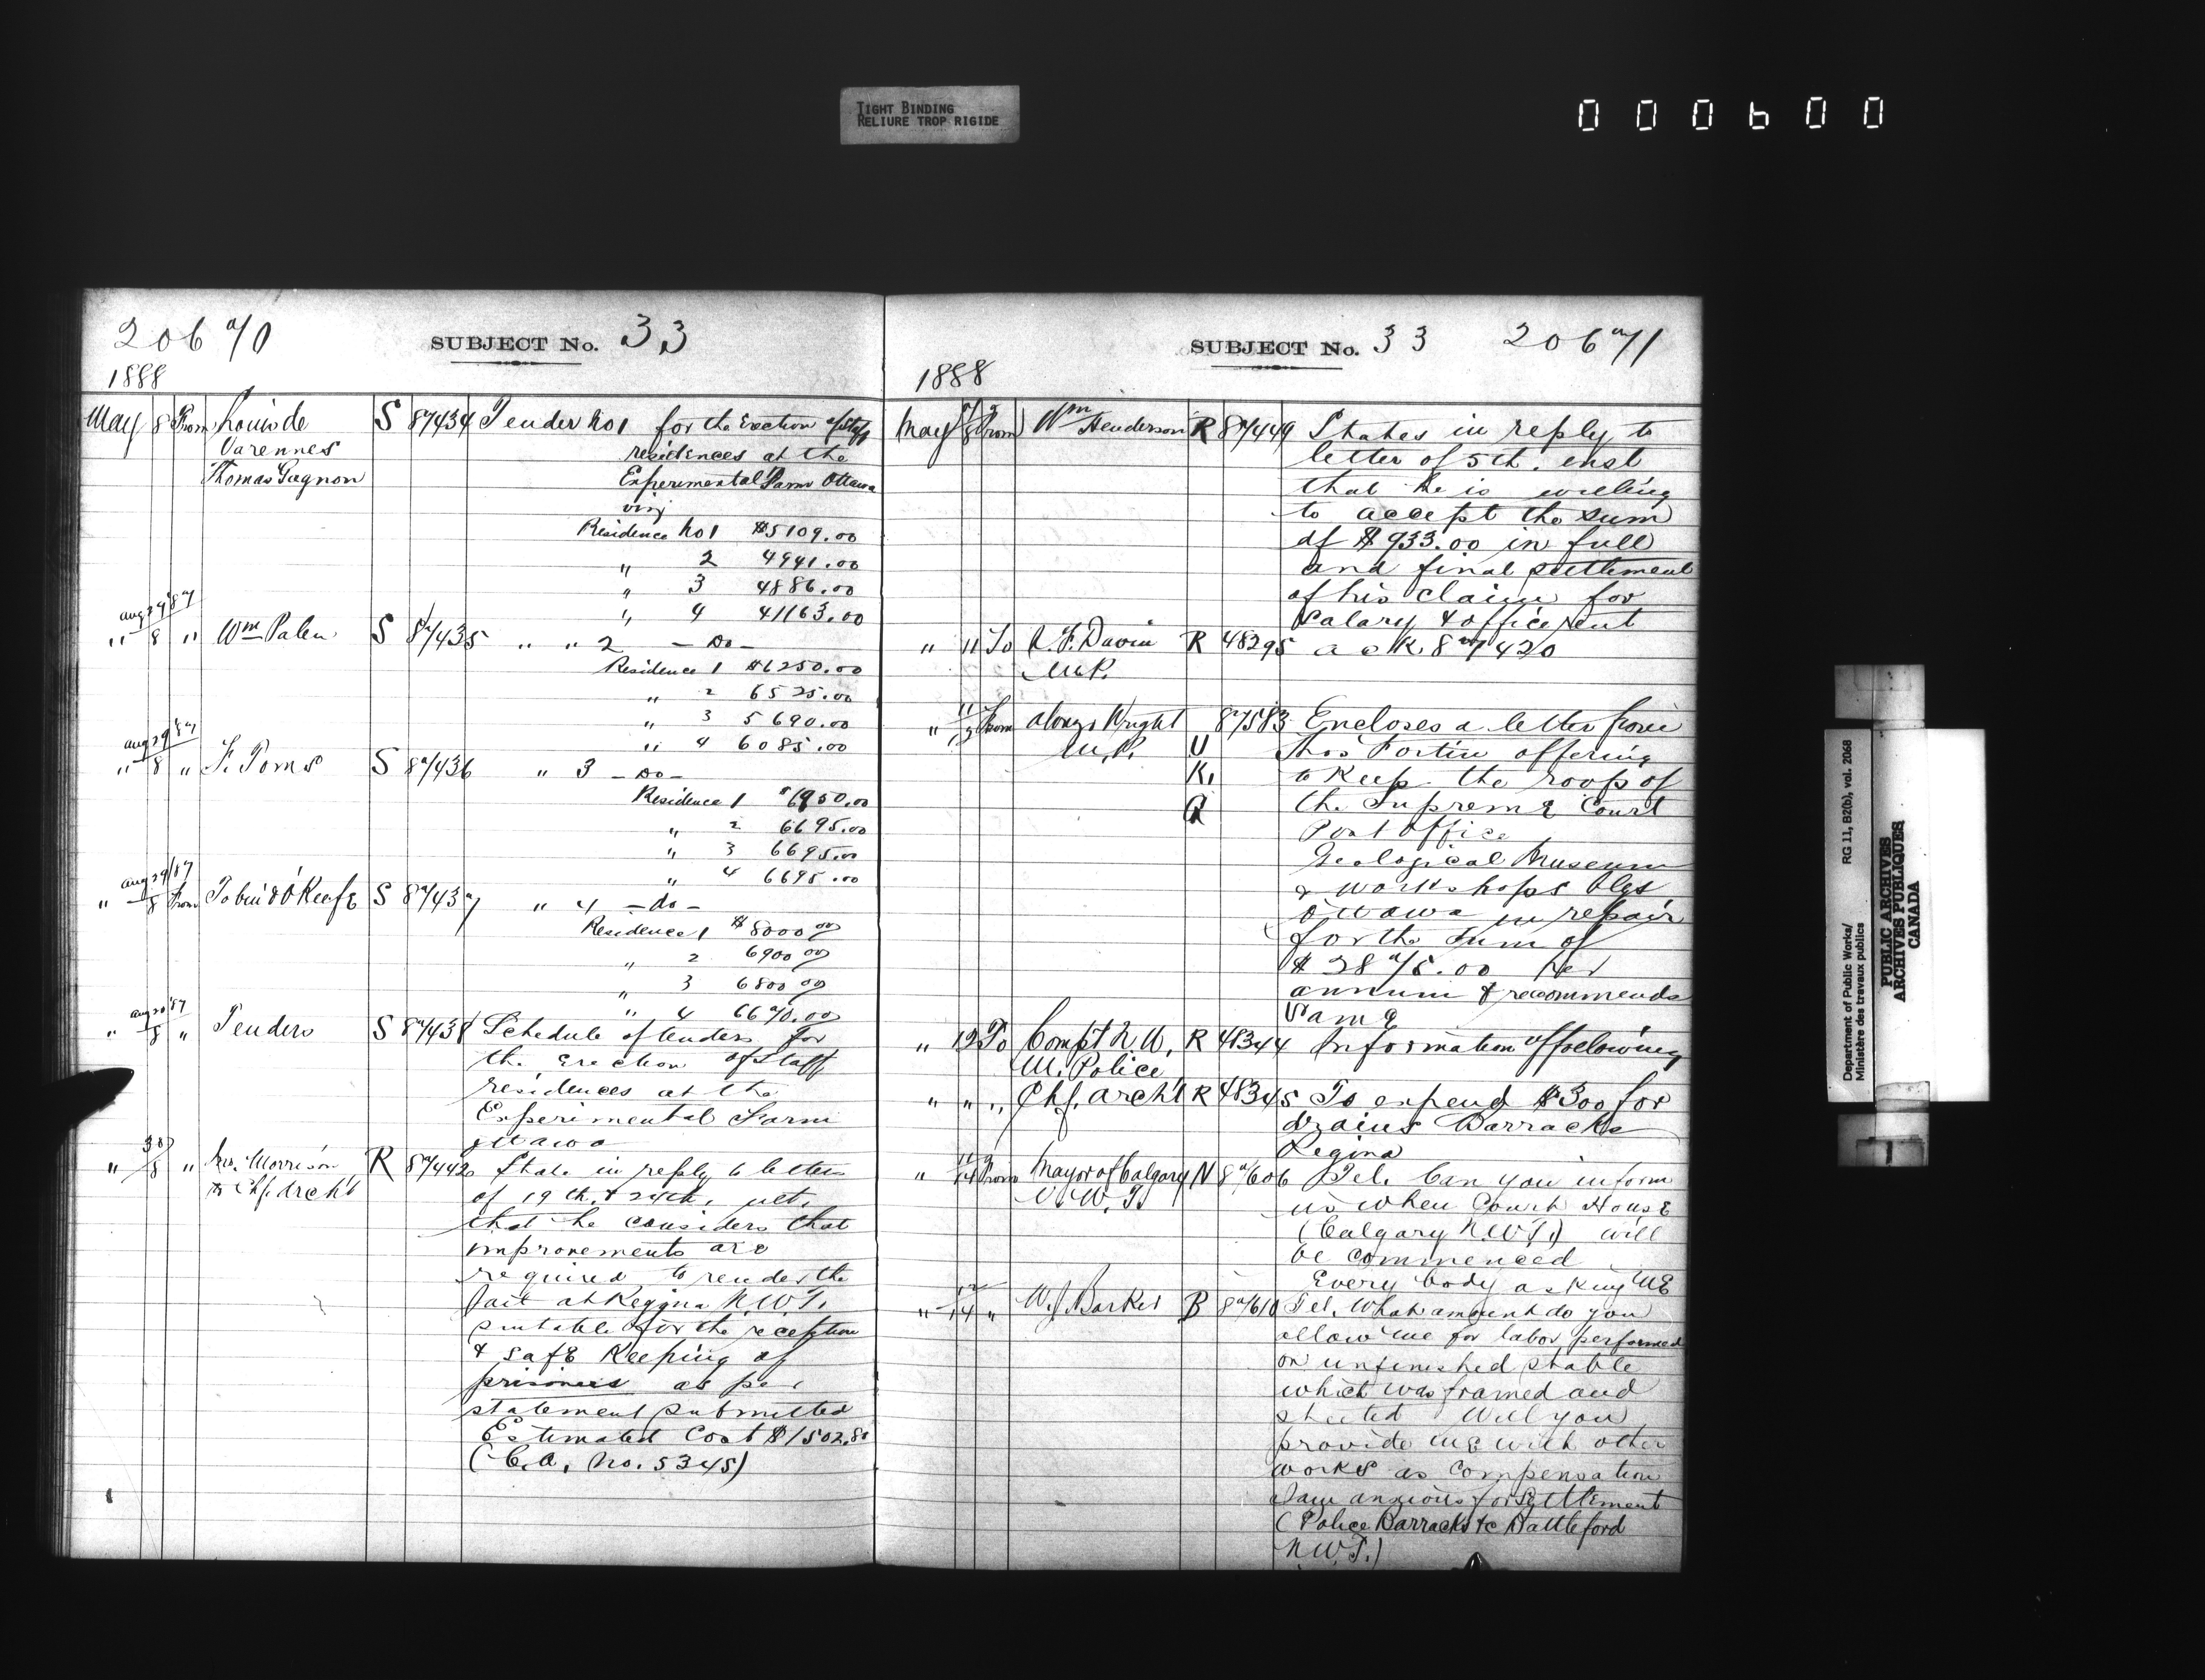 TIGHT BINDING
RELIURE TROP RIGIDE
000600
20670
SUBJECT No. 33
1888
May 8 From Louis de S 87434 Tender No 1 for the Erection of Staff
Varennes residences at the
Thomas Gagnon Experimental Farm Ottawa
viz
Residence No 1 $5109.00
" 2 4941.00
" 3 4886.00
" 4 41163.00
aug 29/87
" 8 " Wm Palen S 87435 " " 2 - Do -
Residence 1 $6250.00
" 2 6525.00
" 3 5690.00
" 4 6085.00
aug 29/87
" 8 " F. Toms S 87436 " 3 - Do -
Residence 1 $6950.00
" 2 6695.00
" 3 6695.00
" 4 6695.00
aug 29/87
" 8 From Tobin & O'Keefe S 87437 " 4 - do -
Residence 1 $8000 00
" 2 6900 00
" 3 6800 00
" 4 6670.00
aug 30/87
" 8 " Tenders S 87438 Schedule of tenders for
the Erection of Staff
residences at the
Experimental Farm
Ottawa
30
" 8 " Morrison R 87442 State in reply to letters
to Chf. Archt of 19th & 24th. ult.
that he considers that
improvements are
required to render the
Jail at Regina N.W.T.
suitable for the reception
& safe Keeping of
prisoners as per
statement submitted
Estimated Cost $1502.80
(C.A. No. 5345)
SUBJECT No. 33 20671
1888
May 8 From Wm Henderson R 87449 States in reply to
letter of 5th. inst
that he is willing
to accept the sum
of $933.00 in full
and final settlement
of his claim for
Salary & office rent
" 11 To N. F. Davin R 48295 a o R. 87420
M.P.
11
" 12 From Alonzo Wright 87583 Encloses a letter from
M.P. U Thos Fortin offering
K. to Keep the roofs of
R the Supreme Court
Post office
Geological Museum
& workshops Blgs
Ottawa in repair
for the sum of
$2875.00 per
annum & recommends
Same
" 12 To Compt N. W. R 48344 Information of following
M. Police
" " " Chf. Archt R 48345 To expend $300 for
drains Barracks
Regina
" 14 From Mayor of Calgary N 87606 Tel. Can you inform
N.W.T. us when Court House
(Calgary N.W.T.) will
be commenced
Every body asking me
12
" 14 " W. J. Barker B 87610 Tel. What amount do you
allow me for labor performed
on unfinished stable
which was framed and
sheeted Will you
provide me with other
works as compensation
I am anxious for Settlement
(Police Barracks &c Battleford
N.W.T.)
Department of Public Works/ RG 11, B2(b), vol. 2068
Ministère des travaux publics
PUBLIC ARCHIVES
ARCHIVES PUBLIQUES
CANADA